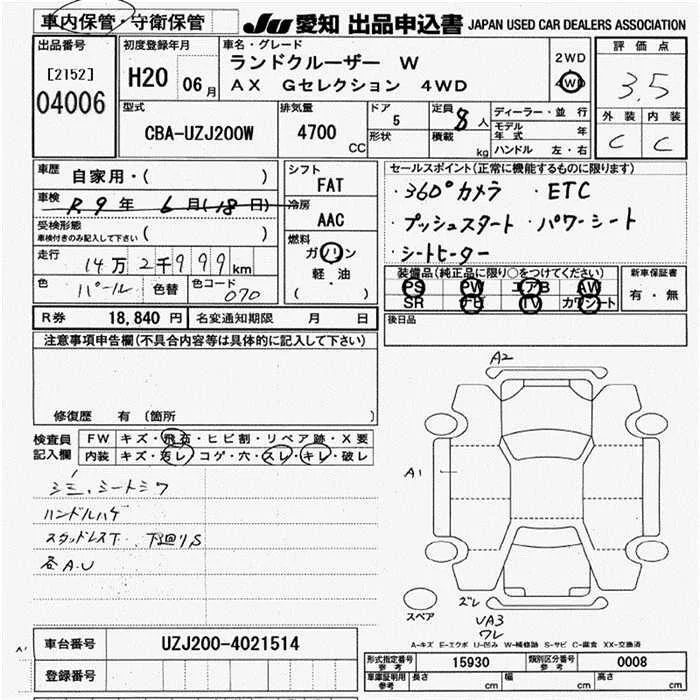 車内保管・守衛保管 JU 愛知 出品申込書 JAPAN USED CAR DEALERS ASSOCIATION
出品番号 [2152] 04006
初度登録年月 H20 06月
車名・グレード
ランドクルーザー W
AX Gセレクション 4WD
2WD
4WD
評価点 3.5
外装 内装
C C
型式 CBA-UZJ200W
排気量 4700 CC
ドア 5
形状
定員 8 人
積載 kg
ディーラー・並行
モデル年式 年
ハンドル 左・右
車歴 自家用・( )
車検 R9年 6月(18日)
受検形態
車検付きのみ記入して下さい ( )
走行 14万2千999km
色 パール 色替 色コード 070
シフト FAT
冷房 AAC
燃料 ガソリン
軽・油
( )
セールスポイント(正常に機能するものに限ります)
・360°カメラ ・ETC
・プッシュスタート・パワーシート
・シートヒーター
装備品(純正品に限り○をつけてください)
PS PW エアB AW
SR ナビ TV カワシート
新車保証書
有・無
R券 18,840円 名変通知期限 月 日
後日品
注意事項申告欄(不具合内容等は具体的に記入して下さい)
修復歴 有 〔箇所 〕
検査員記入欄
FW キズ・飛石・ヒビ割・リペア跡・X要
内装 キズ・汚レ・コゲ・穴・スレ・キレ・破レ
シミ、シートシワ
ハンドルハゲ
スタッドレスT. 下廻りS
各A.U
A2
A1
スペア
ズレ
UA3
ワレ
A-キズ E-エクボ U-凹み W-補修跡 S-サビ C-腐食 XX-交換済
車台番号 UZJ200-4021514
登録番号
形式指定番号 参考 15930 類別区分番号 参考 0008
車庫証明用参考 長さ cm 幅 cm 高さ cm